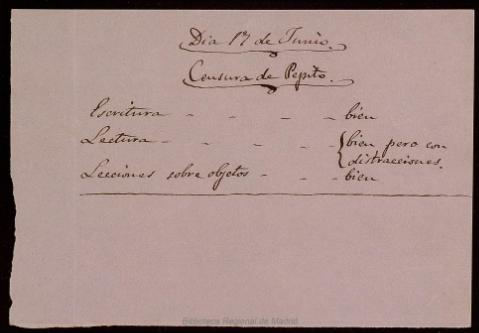 Dia 17 de Junio.
Censura de Pepito.
Escritura - - - - - bien
Lectura - - - - - - { bien pero con
distracciones.
Lecciones sobre objetos - - - bien
Biblioteca Regional de Madrid